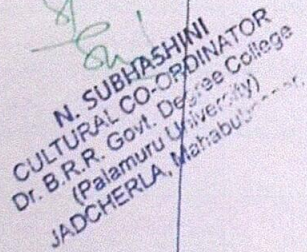 N. SUBHASHINI
CULTURAL CO-ORDINATOR
Dr. B.R.R. Govt. Degree College
(Palamuru University)
JADCHERLA,